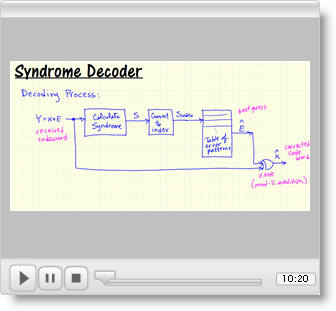 Syndrome Decoder
Decoding Process:
Y=X+E
received
codeword
Calculate
Syndrome
S
Convert
to
index
Sindex
Table of
error
patterns
best guess
Ê
X̂
corrected
code
word
EXOR
(mod-2 addition)
10:20